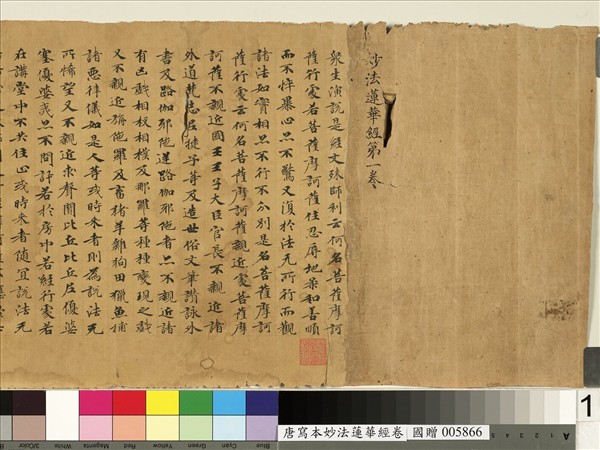 妙法蓮華經第一卷
眾生演說是經文殊師利云何名菩薩摩訶
薩行處若菩薩摩訶薩住忍辱地柔和善順
而不悴暴心亦不驚又復於法无所行而觀
諸法如實相亦不行不分別是名菩薩摩訶
薩行處云何名菩薩摩訶薩親近處菩薩摩
訶薩不親近國王王子大臣官長不親近諸
外道梵志尼揵子等及造世俗文筆讚詠外
書及路伽耶陀逆路伽耶陀者亦不親近諸
有凶戲相扠相撲及那羅等種種變現之戲
又不親近旃陀羅及畜猪羊雞狗田獵魚捕
諸惡律儀如是人等或時來者則為說法无
所悕望又不親近求聲聞比丘比丘尼優婆
塞優婆夷亦不問訊若於房中若經行處若
在講堂中不共住止或時來者隨宜說法无
3/Color White Magenta Red Yellow Green Cyan Blue
唐寫本妙法蓮華經卷 國贈 005866
A
1